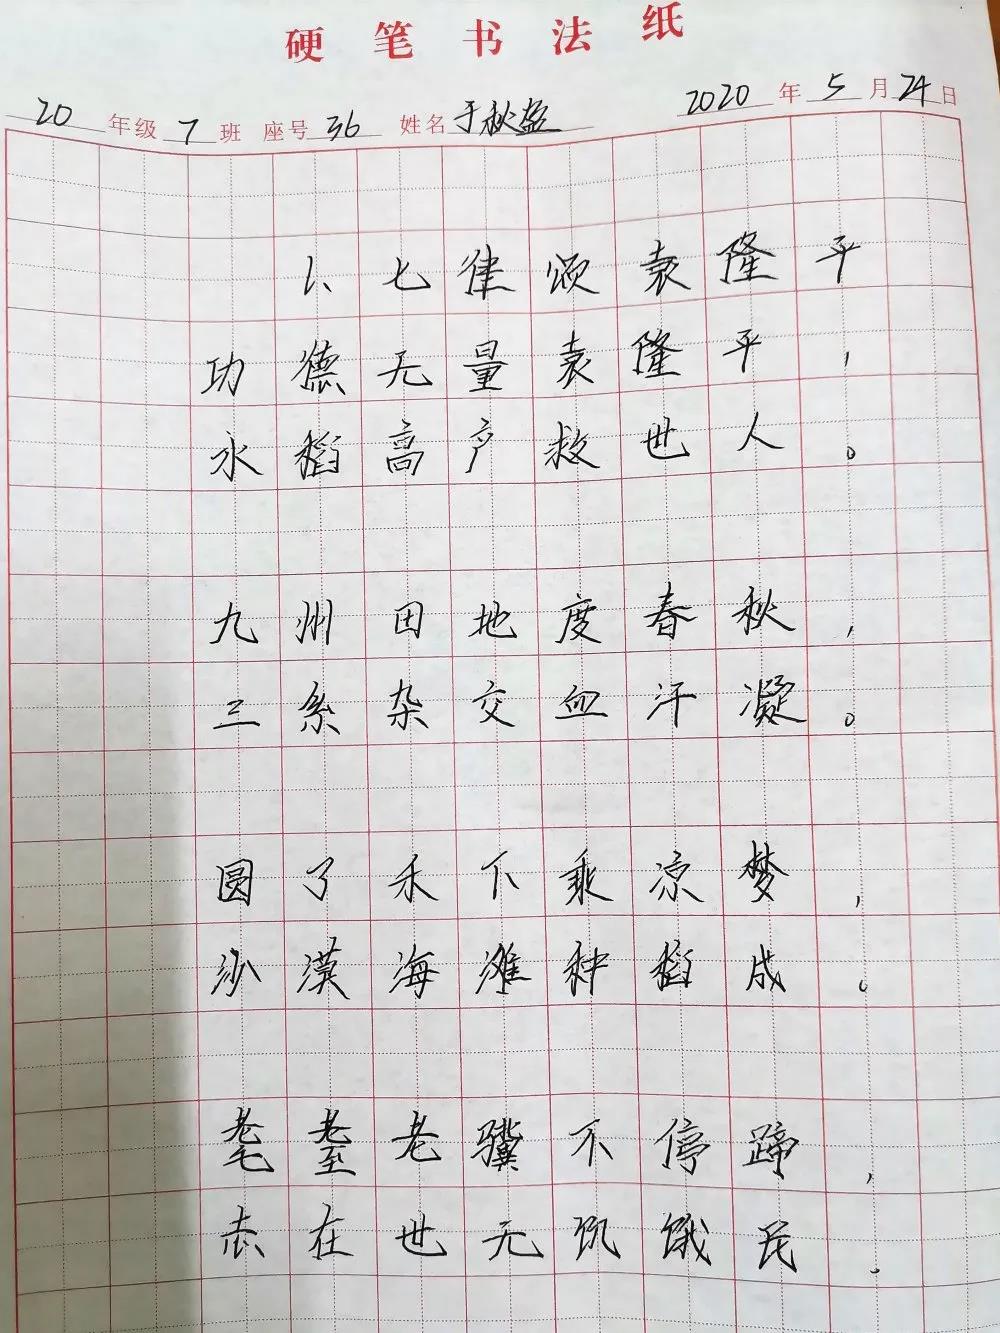 硬笔书法纸
20年级7班 座号36 姓名于秋盈 2020年5月24日
1、七律颂袁隆平
功德无量袁隆平，
水稻高产救世人。
九州田地度春秋，
三系杂交血汗凝。
圆了禾下乘凉梦，
沙漠海滩种稻成。
耄耋老骥不停蹄，
志在世无饥饿民。